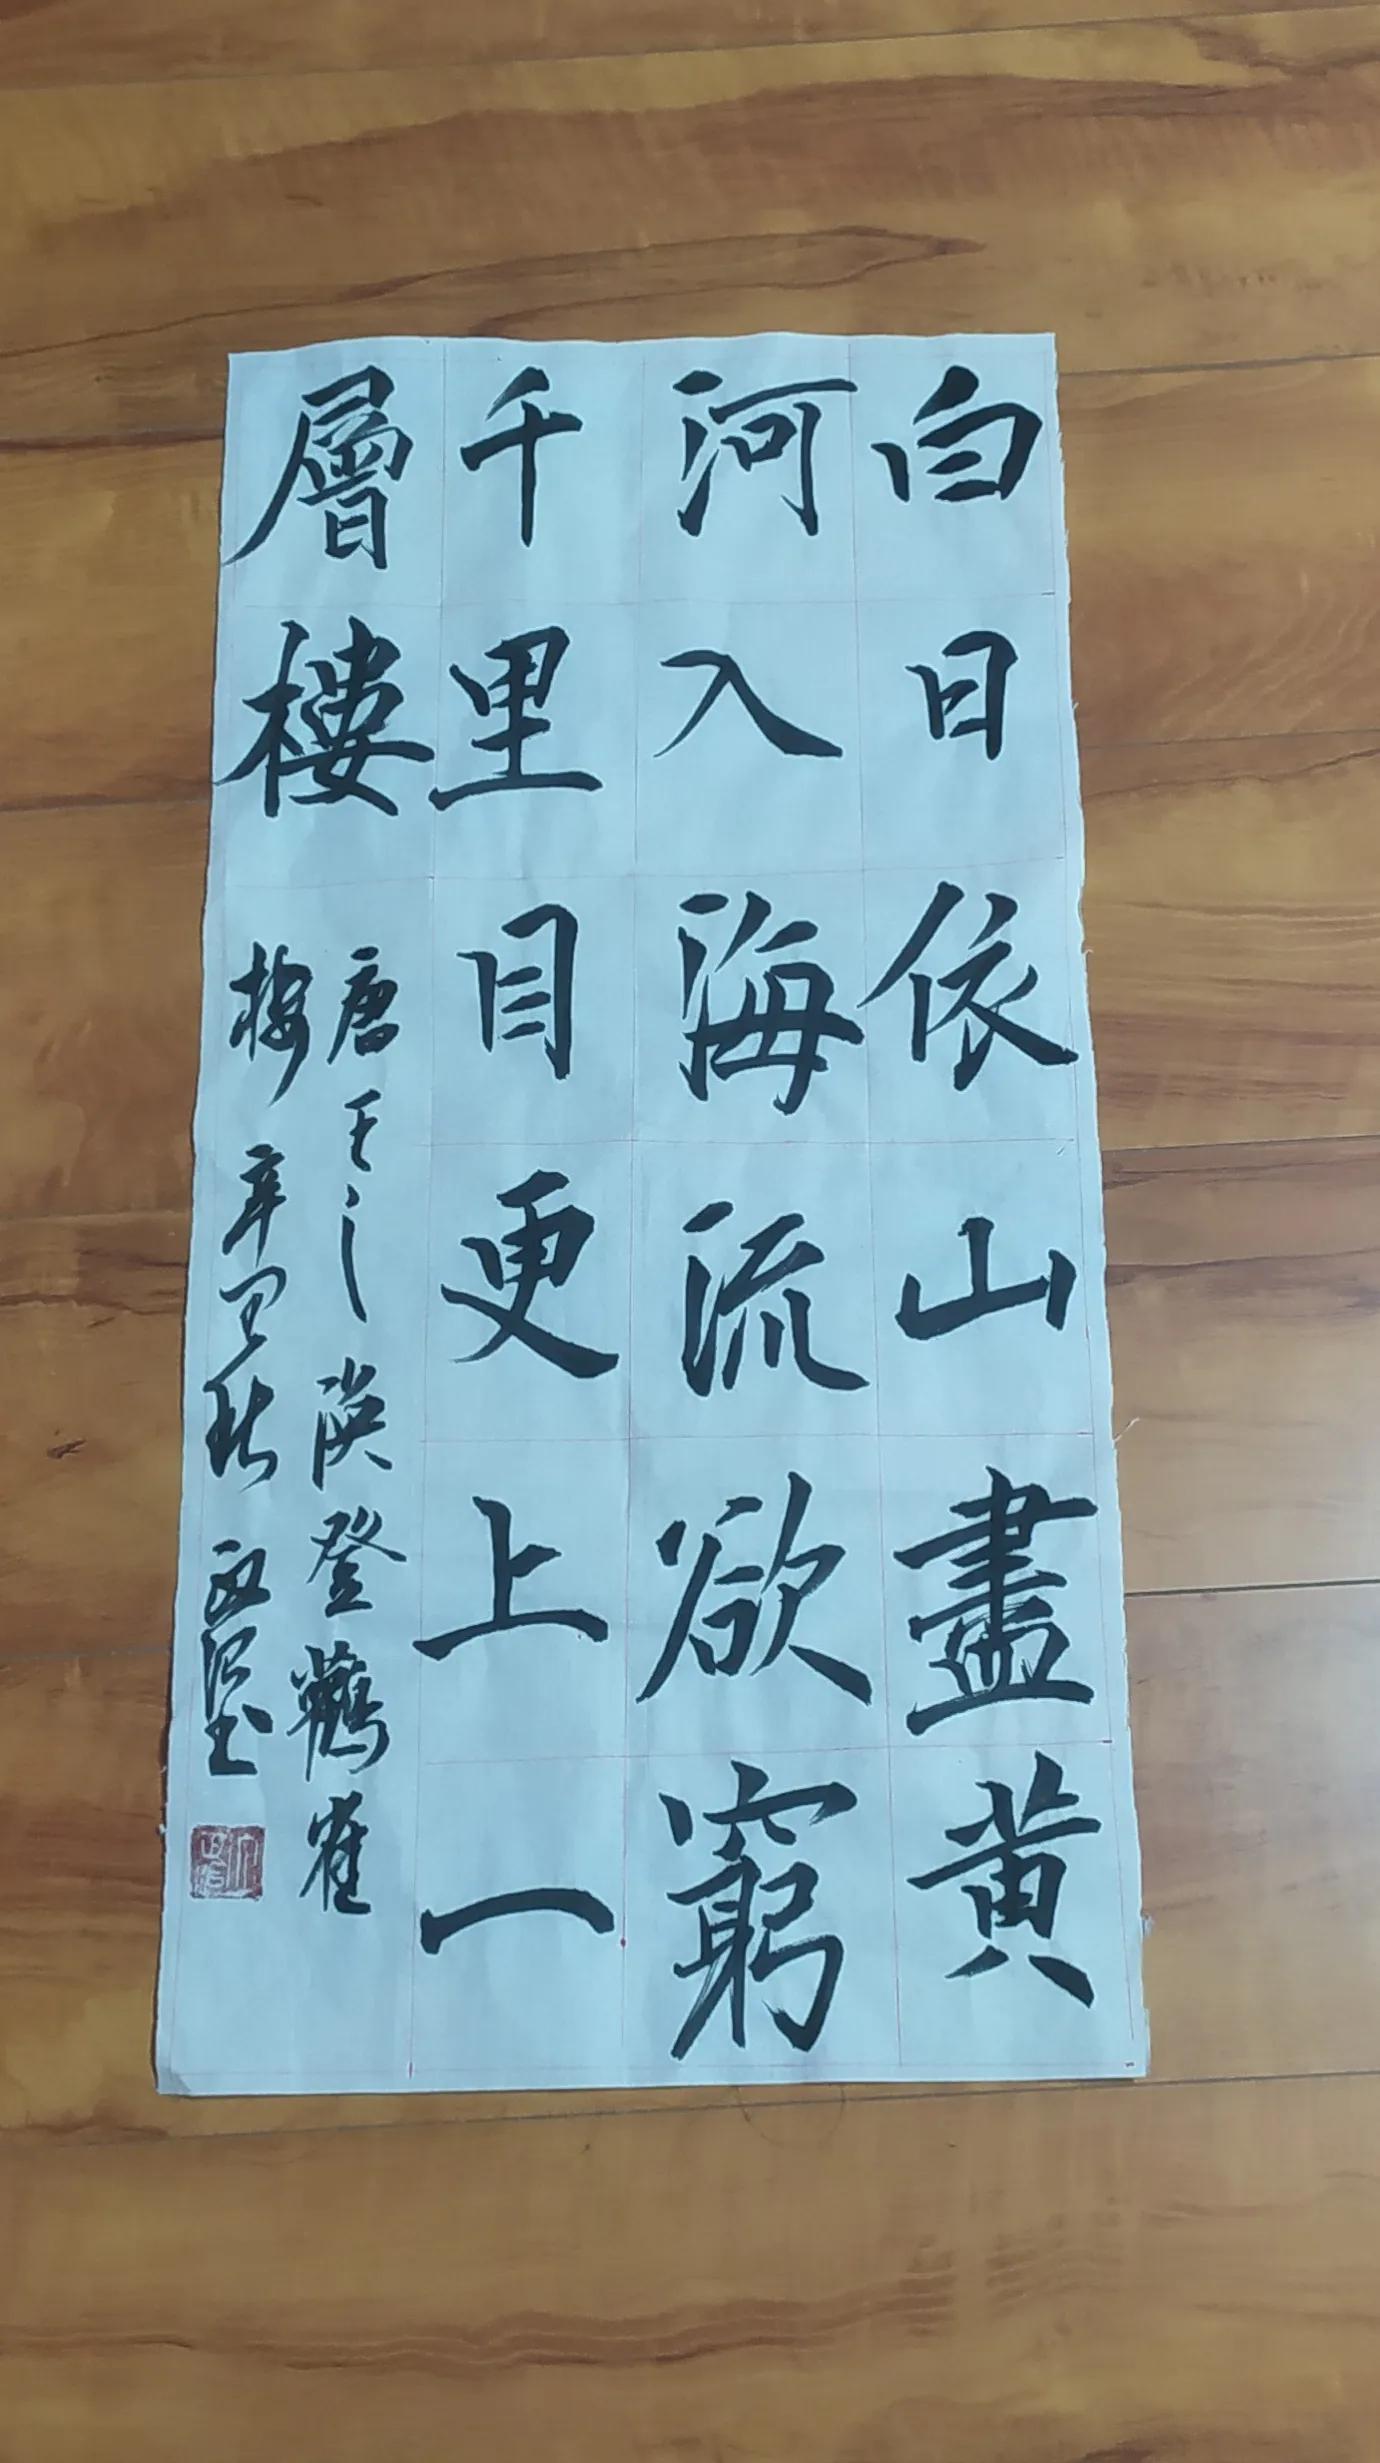 白日依山盡黃
河入海流欲窮
千里目更上一
層樓
唐王之渙登鸛雀
樓 辛丑秋